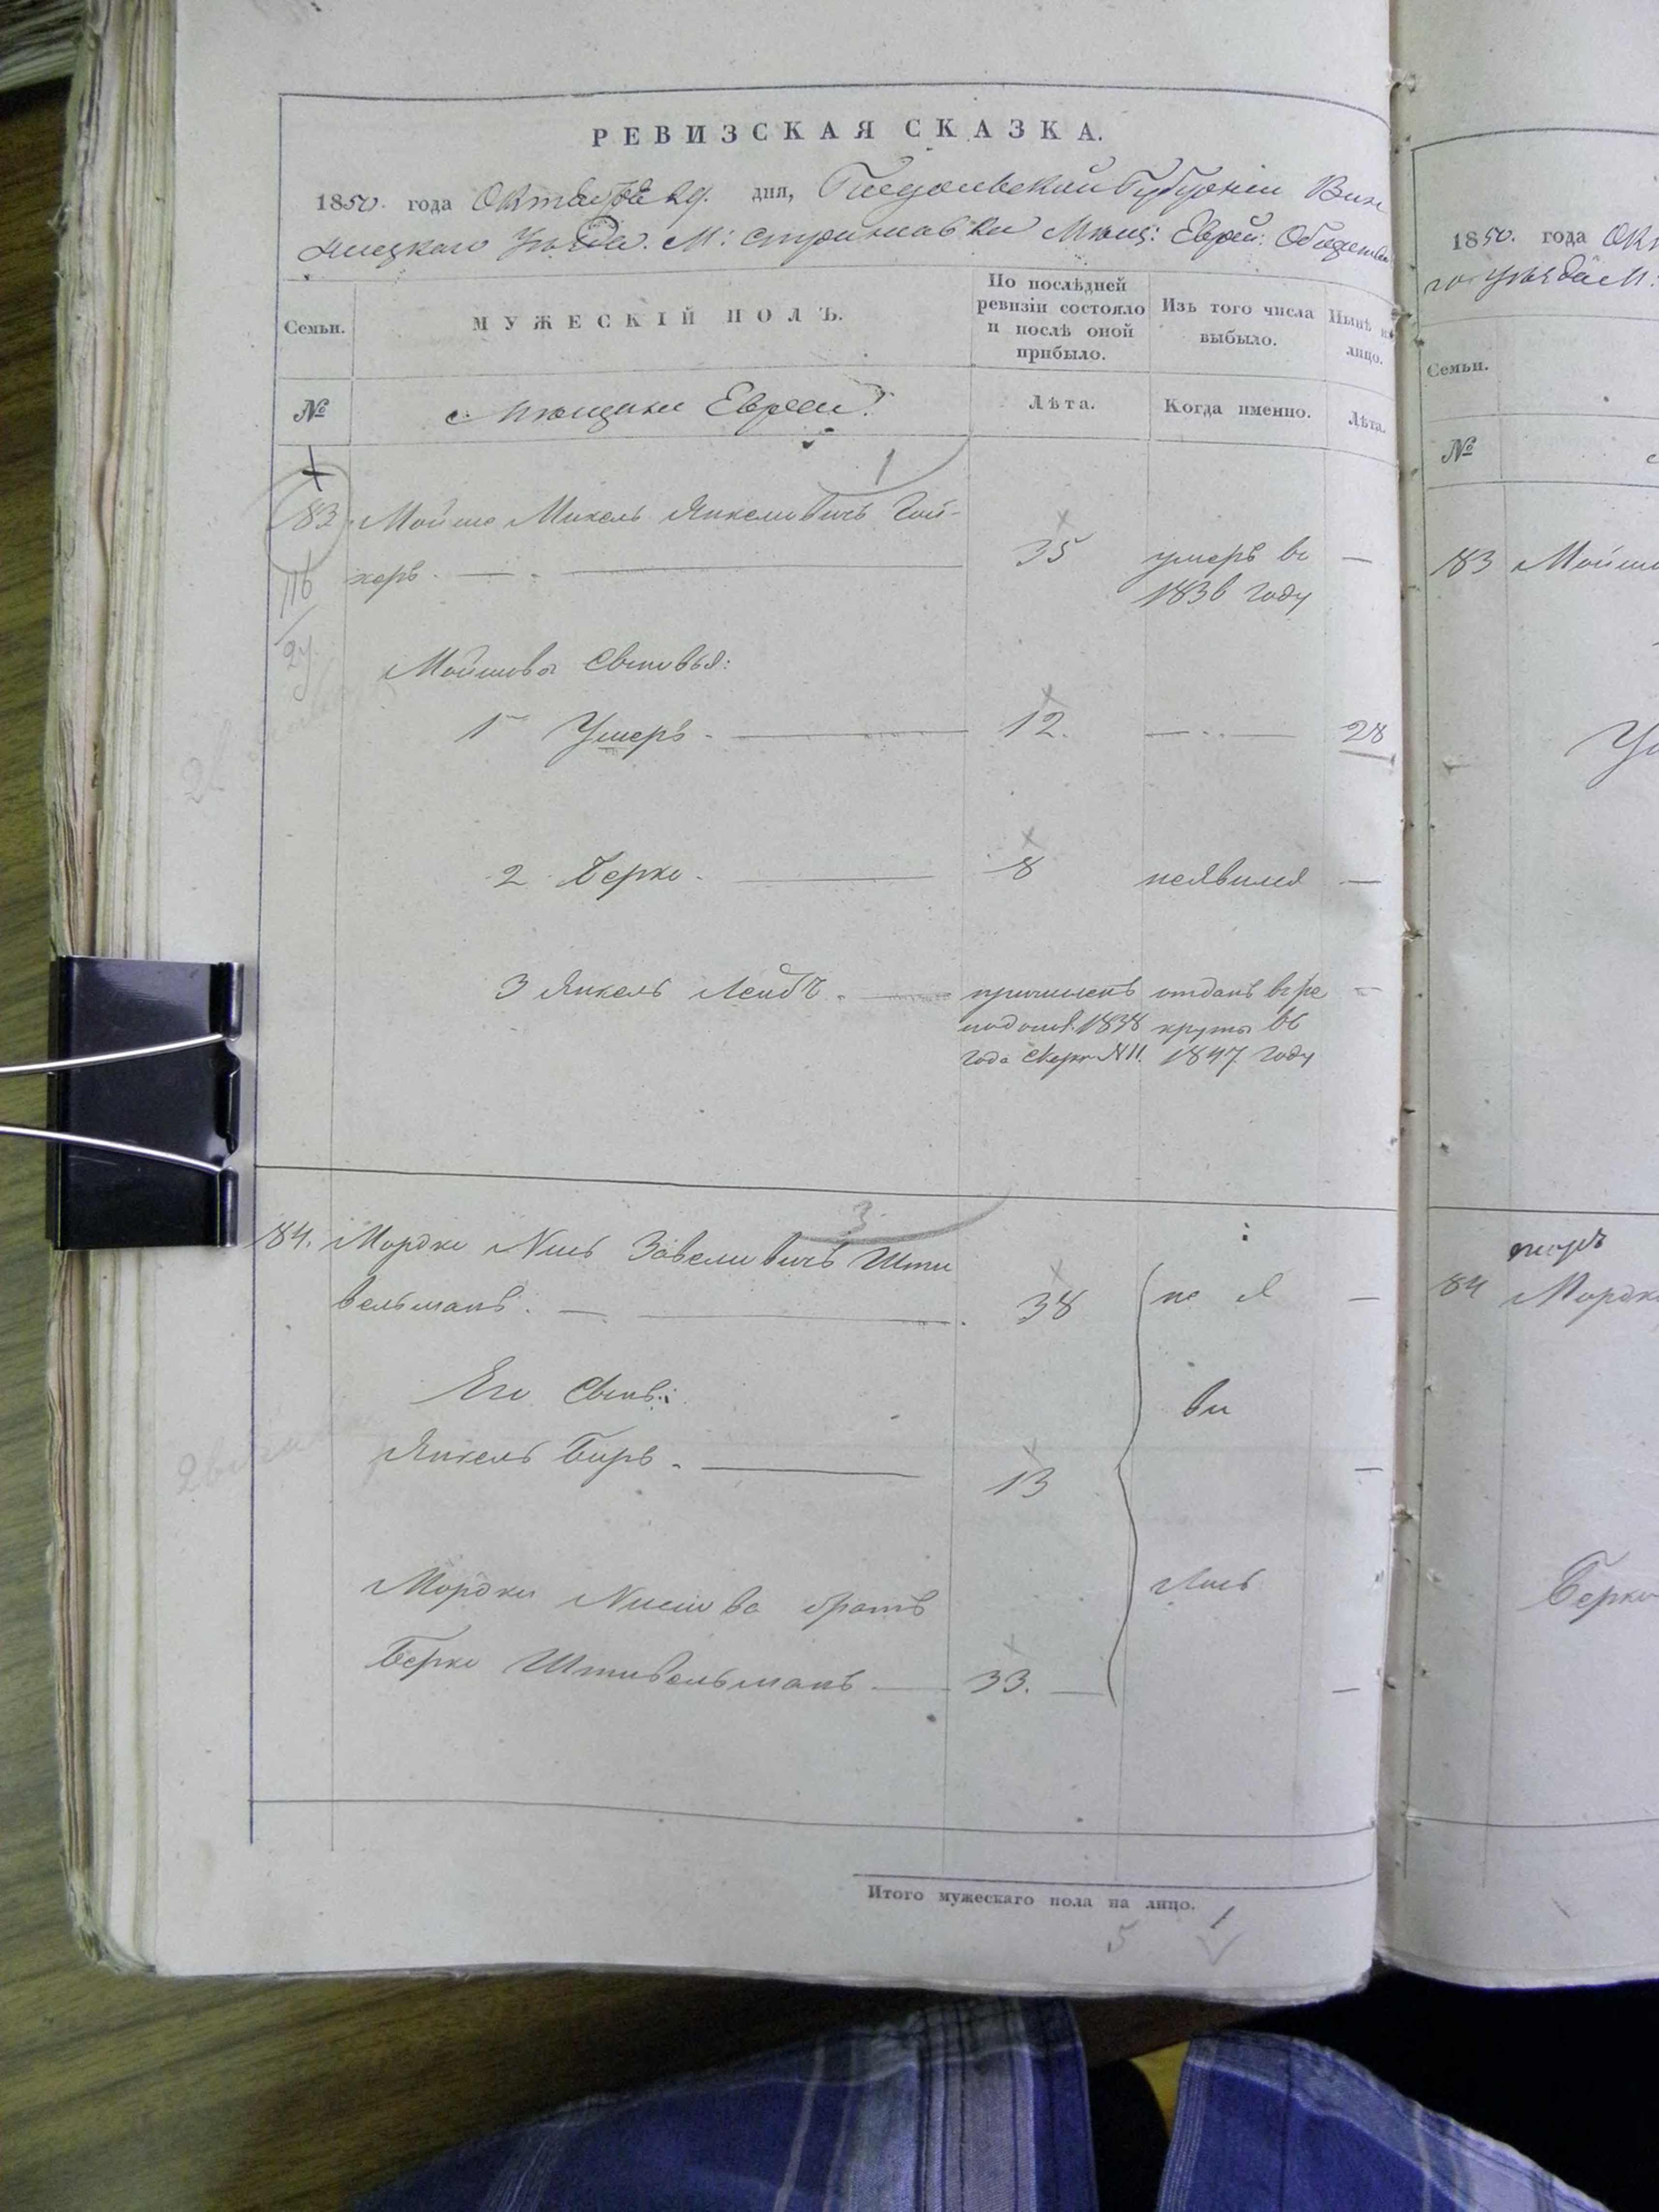 РЕВИЗСКАЯ СКАЗКА.
1850. года Октября 29. дня, Подольской Губерніи Вин
ницкаго Уѣзда. М: Стрижавки Мѣщ: Еврей: Общества
Семьи.
МУЖЕСКІЙ ПОЛЪ.
По послѣдней ревизіи состояло и послѣ оной прибыло.
Изъ того числа выбыло.
Нынѣ на лицо.
№
Мѣщане Евреи:
Лѣта.
Когда именно.
Лѣта.
1
83 Мойше Михель Янкелевичъ
херъ. 35 умеръ въ —
1836 году
116
Мойшовы Сыновья:
1й Умеръ — 12. — 28
2 Берко — 8 неявился —
3 Янкель Лейбъ — причисленъ отданъ въ ре —
1838 круты въ
года №11. 1847 году
3
84. Мордко Нись Завелевичъ Шти
вельманъ. — 38 не я —
Его Сынъ: ви
Янкель Беръ — 13 —
Мордки Нисiова братъ лись
Берко Штивельманъ — 33. — —
Итого мужескаго пола на лицо. 1
5
1850. года Окт
го Уѣзда М:
Семьи.
№
83 Мойше
Берко
84 Мордк